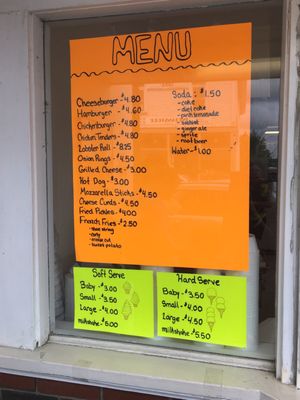 MENU
Cheeseburger - $4.80
Hamburger - $4.60
Chickenburger - $4.80
Chicken Tenders - $4.80
Lobster Roll - $8.25
Onion Rings - $4.50
Grilled Cheese - $3.00
Hot Dog - $3.00
Mozzarella Sticks - $4.50
Cheese Curds - $4.50
Fried Pickles - $4.00
French Fries - $2.50
- shoe string
- curly
- crinkle cut
- sweet potato
Soda - $1.50
- coke
- diet coke
- pink lemonade
- ginger ale
- sprite
- root beer
Water - $1.00
Soft Serve
Baby - $3.00
Small - $3.50
Large - $4.00
milkshake - $5.00
Hard Serve
Baby - $3.50
Small - $4.00
Large - $4.50
milkshake - $5.50